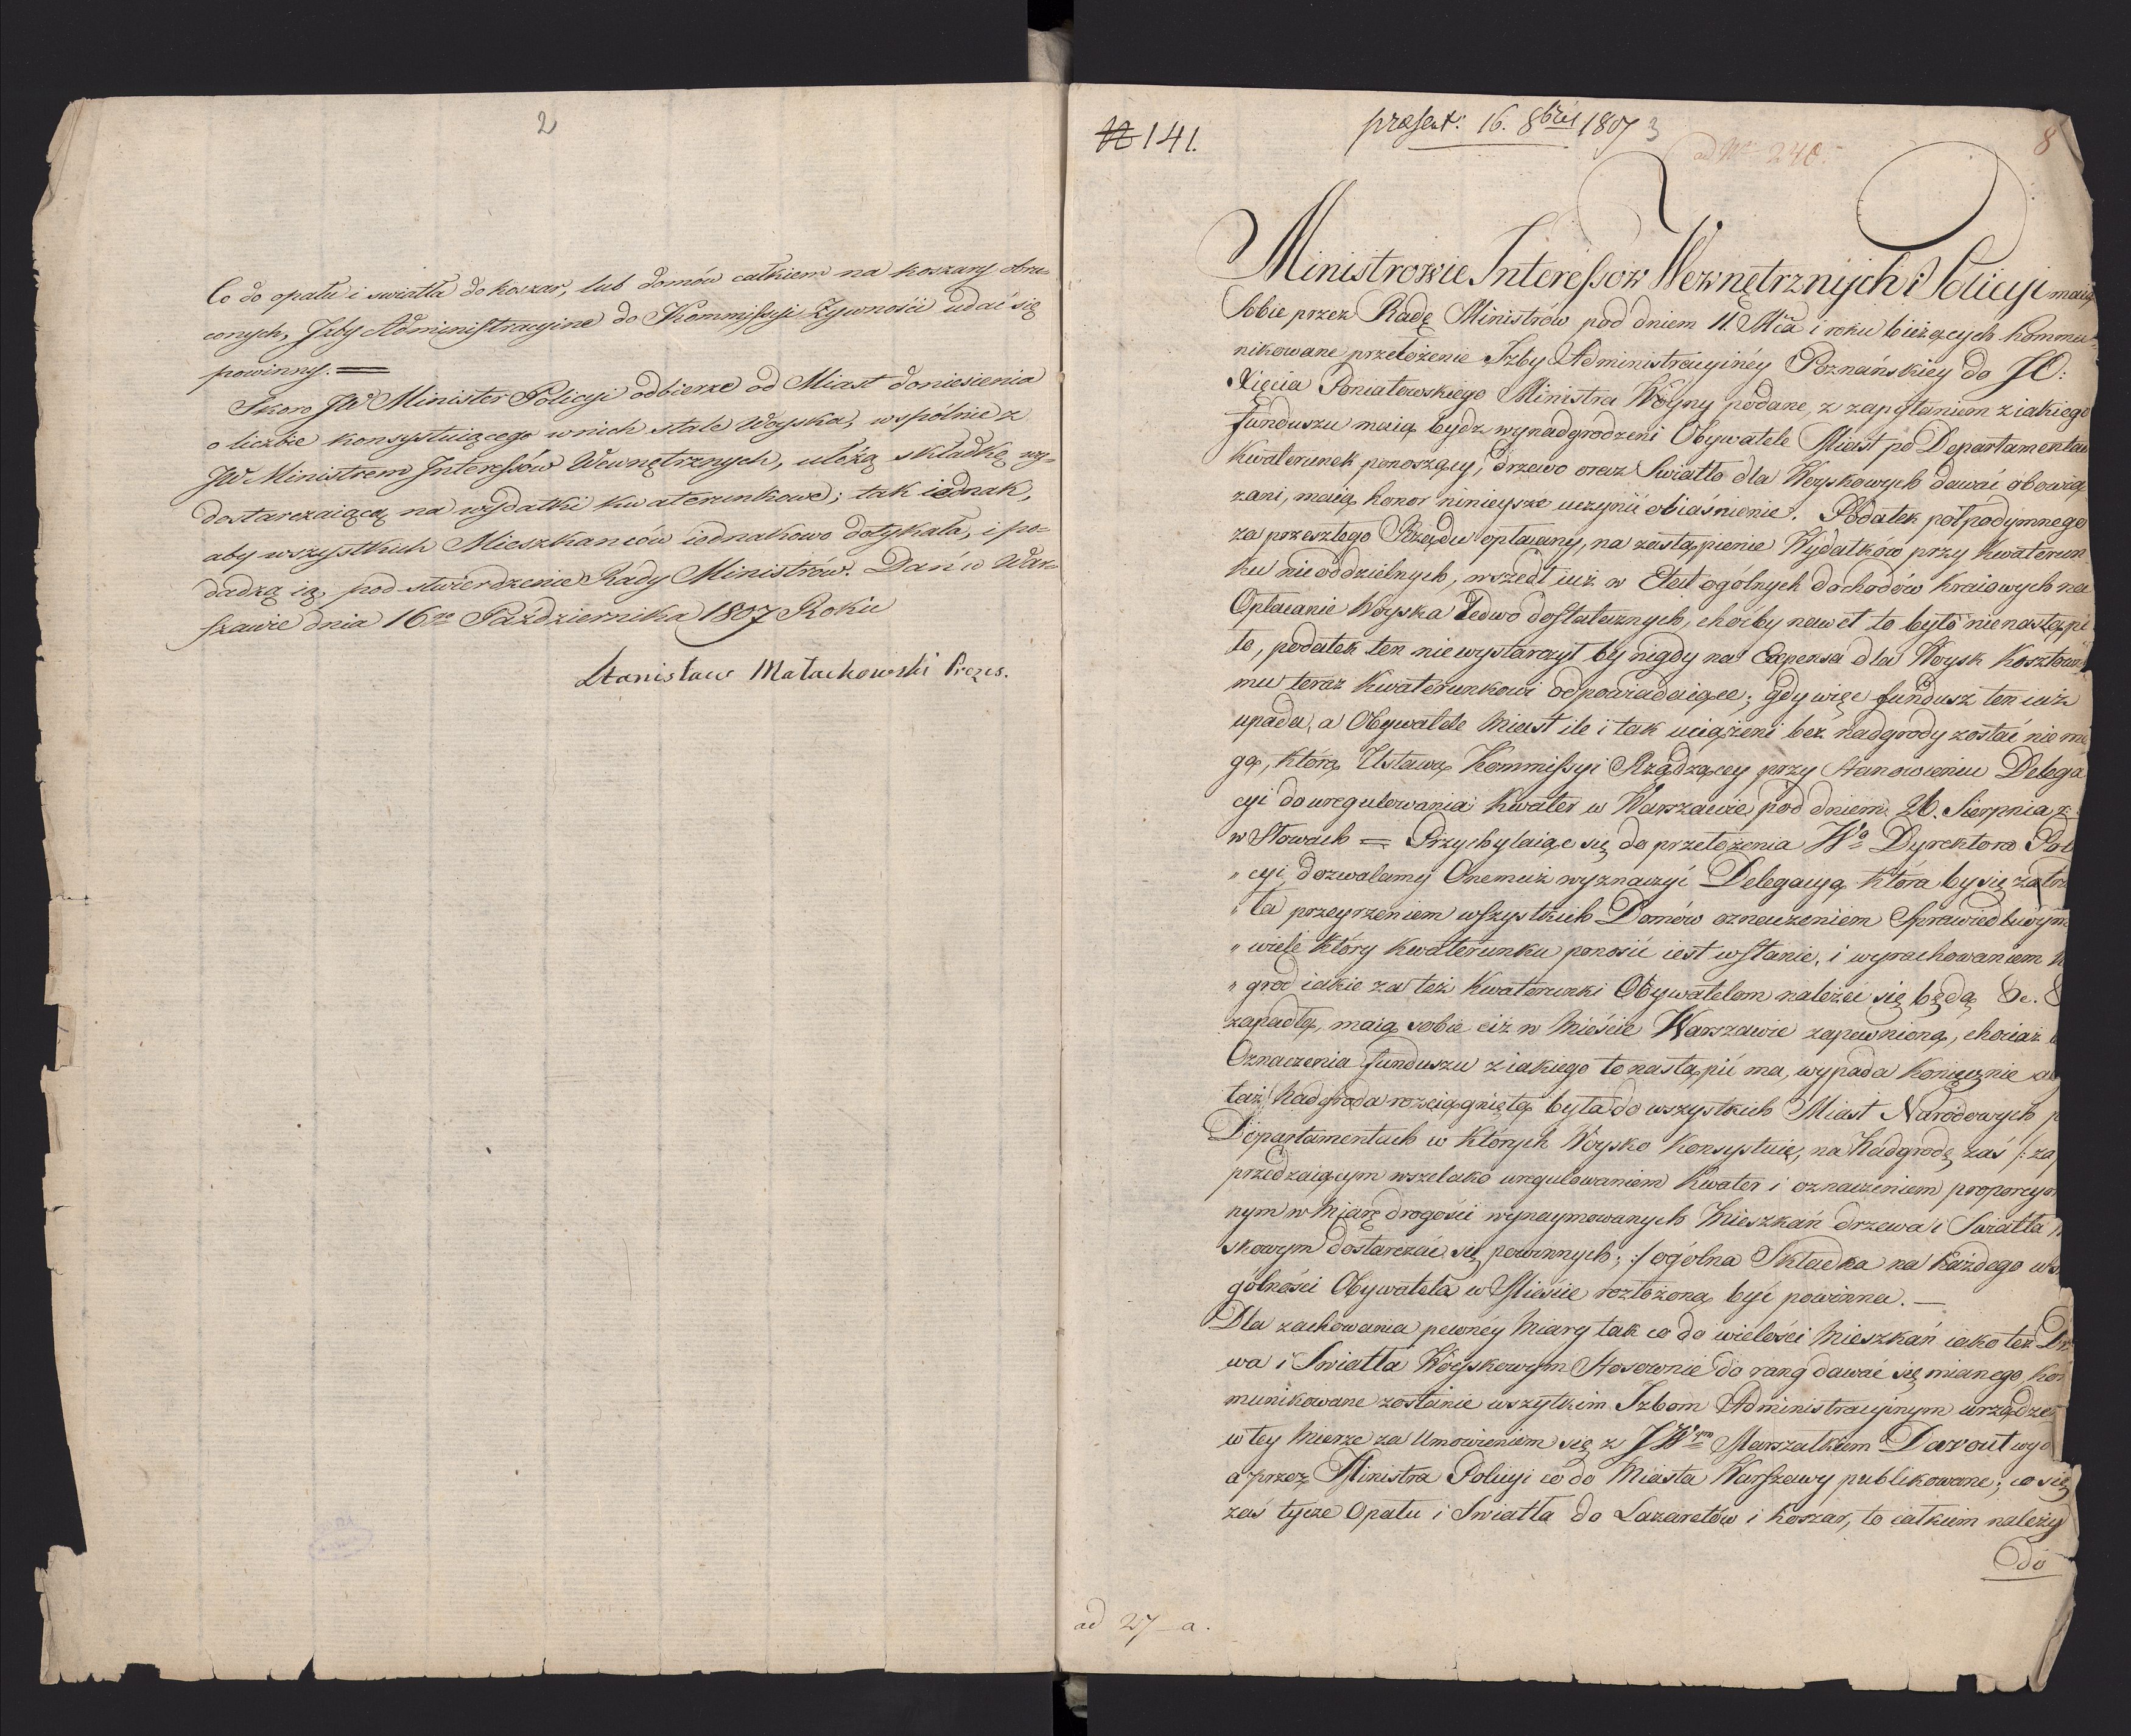 2
Co do opału i swiatła do koszar, lub domów całkiem na koszary obru-
conych, Jzby Administracyine do Kommissyi Zywnośći udać się
powinny. =
Skoro JW Minister Policyi odbierze od Miast doniesienia
o liczbie konsystuiącego w nich stale Woyska, wspólnie z
JW Ministrem Interessów Wewnętrznych, ułożą składkę wy-
dostarczaiącą na wydatki kwaterunkowe; tak iednak,
aby wszystkich Mieszkanców iednakowo dotykała, i po-
dadzą ią pod stwierdzenie Rady Ministrów. Dań w War-
szawie dnia 16go Października 1807 Roku
Stanisław Małachowski Prezes.
N 141.
præsent: 16. 8bris 1807
3
ad Nr 240.
8
Ministrowie Interessow Wewnętrznych i Policyi maią
Sobie przez Radę Ministrów pod dniem 11. Mca i roku bieżących kommu-
nikowane przełożenie Izby Administracyinéy Poznańskiey do JO:
Xięcia Poniatowskiego Ministra Woyny podane, z zapytaniem z iakiego
funduszu maią bydz wynadgrodzeni Obywatele Miast po Departamentach
Kwaterunek ponoszący, drzewo oraz Swiatło dla Woyskowych dawać obowią-
zani, maią honor ninieysze uczynić obiaśnienie. Podatek półpodymnego
za przeszłego Rządu opłacany, na zastąpienie Wydatków przy Kwaterun-
ku nieoddzielnych, wszedł iuż w Etat ogólnych dochodów Kraiowych na
Opłacanie Woyska ledwo dostatecznych, choćby nawet to było nienastąpi-
ło, podatek ten niewystarczył by nigdy na Expensa dla Woysk Kosztowne-
mu teraz Kwaterunkowi odpowiadaiące; gdy więc fundusz ten iuż
upada, a Obywatele Miast ile i tak uciążeni bez nadgrody zostać nie mo-
gą, którą Ustawą Kommissyi Rządzącey przy stanowieniu Delega-
cyi do uregulowania Kwater w Warszawie pod dniem 26. Sierpnia r:
w Słowach = Przychylaiąc się do przełożenia Wgo Dyrektora Pol
" cyi dozwalamy Onemuż wyznaczyć Delegacyą która by się zatru
" ła przeyrzeniem wszystkich Domów oznaczeniem Sprawiedliwym
" wiele który Kwaterunku ponosić iest wstanie, i wyrachowaniem n
" gród iakie za też Kwaterunki Obywatelom należeć się będą &c. &
zapadłą, maią sobie ciż w Mieście Warszawie zapewnioną, chociaż b
Oznaczenia funduszu z iakiego to nastąpić ma, wypada Koniecznie ab
taż Nadgroda rozciągniętą była do wszystkich Miast Narodowych p
Departamentach w których Woysko Konsystuie, na Nadgrodę zaś /: za p
przedzaiącym wszelako uregulowaniem Kwater i oznaczeniem proporcyon
nym w Miarę drogości wynaymowanych Mieszkań drzewa i Swiatła
skowym dostarczać się powinnych; :/ ogólna Składka na Każdego w s
gólności Obywatela w Mieście rozłożoną być powinna. —
Dla zachowania pewnéy Miary tak co do wielości Mieszkań iako też Drz
wa i Swiatła Woyskowym Stosownie do rang dawać się mianego, kom
munikowane zostanie wszytkim Izbom Administracyinym urządze
w tey Mierze za Umowieniem się z JWym Marszałkiem Davout wyd
a przez Ministra Policyi co do Miasta Warszawy publikowane; co się
zaś tycze Opału i Swiatła do Lazaretów i Koszar, to całkiem należy
do
ad 27 a.